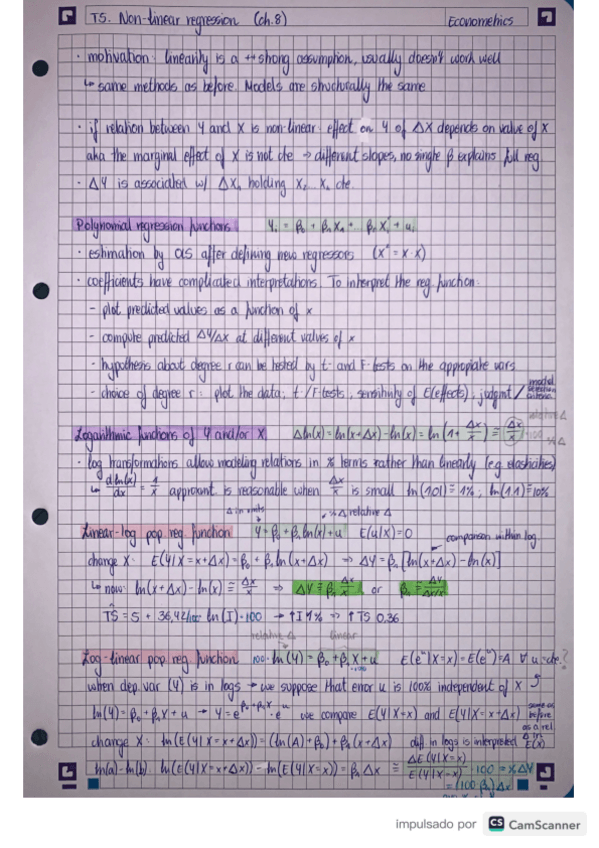 T5. Non-linear regression (ch.8) Econometrics
· motivation: linearity is a ++ strong assumption, usually doesn't work well
↳ same methods as before. Models are structurally the same
· if relation between Y and X is non-linear: effect on Y of ΔX depends on value of X
aka the marginal effect of X is not cte → different slopes, no single β explains full reg
· ΔY is associated w/ ΔX₁ holding X₂ ... Xₖ cte.
Polynomial regression functions Yᵢ = β₀ + β₁X₁ + ... βᵣXᵢʳ + uᵢ
· estimation by OLS after defining new regressors (X² = X·X)
· coefficients have complicated interpretations. To interpret the reg. function:
- plot predicted values as a function of x
- compute predicted ΔY/ΔX at different values of x
- hypothesis about degree r can be tested by t- and F-tests on the appropiate vars.
- choice of degree r: plot the data, t/F-tests, sensitivity of E(effects), judgmt / model selection criteria.
relative Δ
Logarithmic functions of Y and/or X Δln(x) = ln(x+Δx) - ln(x) = ln(1 + Δx/x) ≅ Δx/x ·100 %Δ
· log transformations allow modeling relations in % terms rather than linearly (e.g. elasticities)
↳ dln(x)/dx = 1/x approximt is reasonable when Δx/x is small ln(1.01) ≅ 1%; ln(1.1) ≅ 10%
Δ in units %Δ relative Δ
Linear-log pop reg. function Y = β₀ + β₁ ln(x) + u E(u|X) = 0 comparison within log.
change X: E(Y|X = x+Δx) = β₀ + β₁ ln(x+Δx) ⇒ ΔY = β₁ [ln(x+Δx) - ln(x)]
↳ now: ln(x+Δx) - ln(x) ≅ Δx/x ⇒ ΔY ≅ β₁ Δx/x or β₁ ≅ ΔY/Δx/x
T̂S = 5 + 36,42/100 ln(I)·100 → ↑I 1% ⇒ ↑TS 0,36
relative Δ linear
Log-linear pop reg. function 100·ln(Y) = β₀ + β₁X + u E(eᵘ|X=x) = E(eᵘ) = A ∀ u=cte.?
·100
when dep. var (Y) is in logs → we suppose that error u is 100% independent of X
ln(Y) = β₀ + β₁X + u → Y = e^(β₀+β₁X)·eᵘ we compare E(Y|X=x) and E(Y|X=x+Δx) same as before as a rel. Δ in E(x)
change X: ln(E(Y|X=x+Δx)) = (ln(A)+β₀) + β₁(x+Δx) diff in logs is interpreted
ln(a)-ln(b) ln(E(Y|X=x+Δx)) - ln(E(Y|X=x)) = β₁Δx ≅ ΔE(Y|X=x)/E(Y|X=x) ·100 = %ΔY
= (100·β₁)Δx
impulsado por CS CamScanner